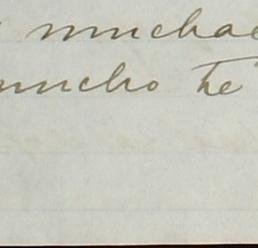 muchac
mucho he